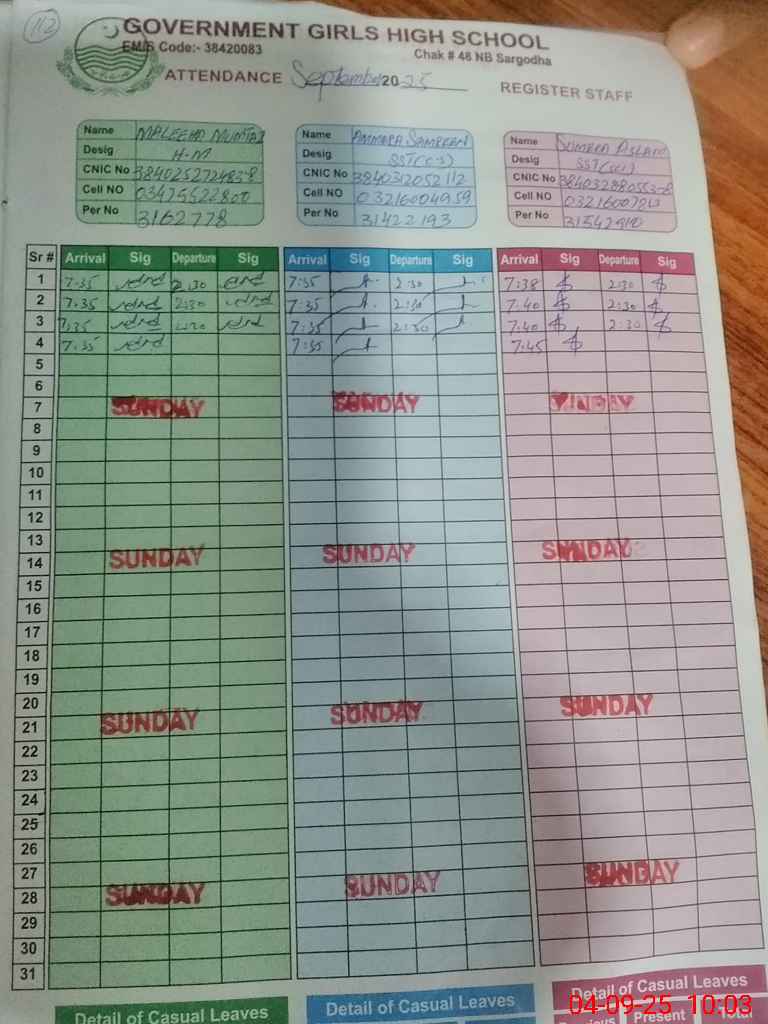 112
GOVERNMENT GIRLS HIGH SCHOOL
EMIS Code:- 38420083
Chak # 48 NB Sargodha
ATTENDANCE September 2025 REGISTER STAFF
Name MALEEHA MUMTAZ
Desig H.M
CNIC No
Cell NO 03475522800
Per No 3162778
Name AMMARA SAMREEN
Desig
CNIC No 3840312052112
Cell NO 03216004959
Per No 31422193
Name SUMERA ASLAM
Desig
CNIC No
Cell NO
Per No
Sr # Arrival Sig Departure Sig Arrival Sig Departure Sig Arrival Sig Departure Sig
1 7:35 2:30 7:35 2:30 7:38 2:30
2 7:35 2:30 7:35 2:30 7:40 2:30
3 7:35 2:30 7:35 2:30 7:40 2:30
4 7:35 7:35 7:45
5
6
7 SUNDAY SUNDAY SUNDAY
8
9
10
11
12
13
14 SUNDAY SUNDAY SUNDAY
15
16
17
18
19
20
21 SUNDAY SUNDAY SUNDAY
22
23
24
25
26
27
28 SUNDAY SUNDAY SUNDAY
29
30
31
Detail of Casual Leaves Detail of Casual Leaves Detail of Casual Leaves
Present Total
04-09-25 10:03